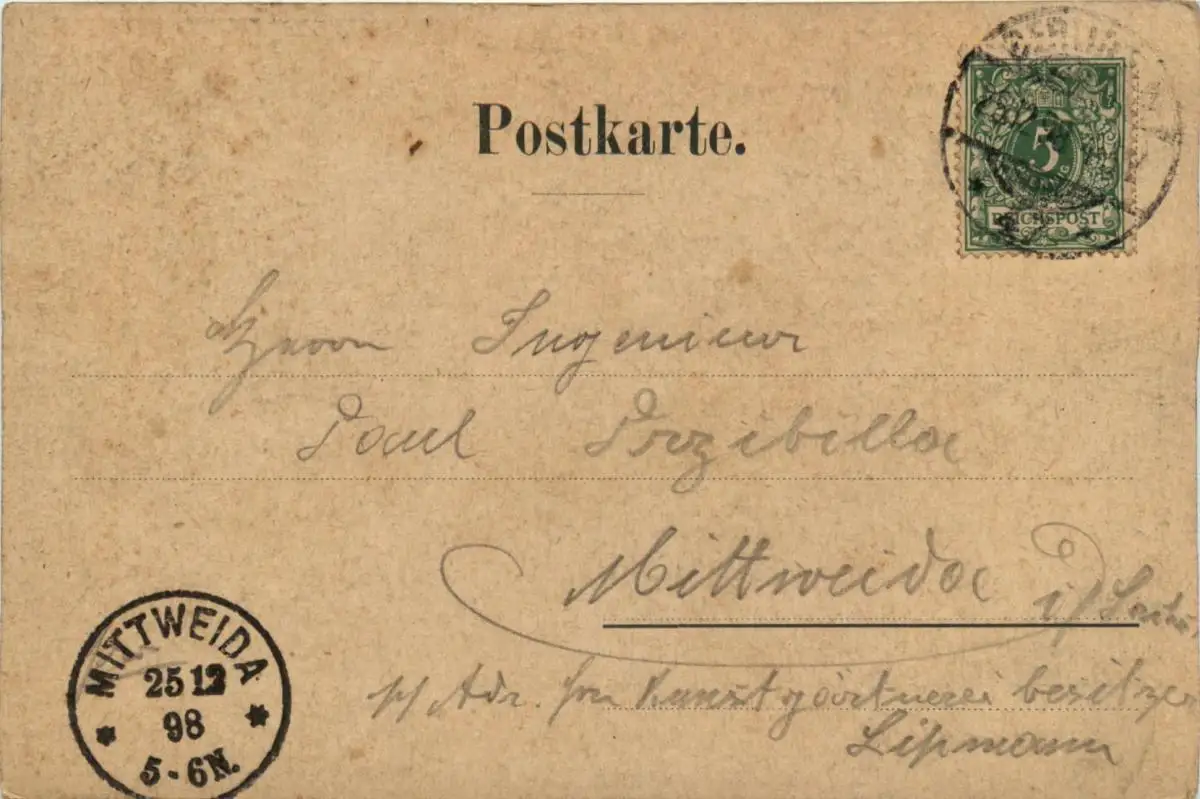 Postkarte.
BERLIN
5
REICHSPOST
Herrn Ingenieur
Paul Przibilla
Mittweida
i/ Sachs.
p/ Adr. Hrn Kunstgärtnerei besitzer
Lipmann
MITTWEIDA
25 12
98
5-6N.